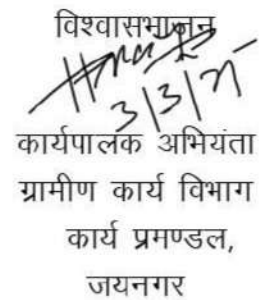 विश्वासभाजन
3/3/25
कार्यपालक अभियंता
ग्रामीण कार्य विभाग
कार्य प्रमण्डल,
जयनगर